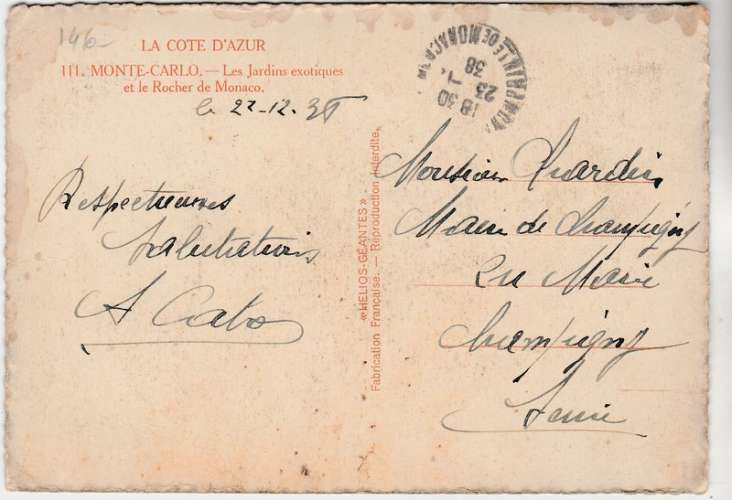 146-
LA COTE D'AZUR
111. MONTE-CARLO. — Les Jardins exotiques
et le Rocher de Monaco.
le 22-12.38
Respectueuses
Salutations
«HELIOS-GÉANTES»
Fabrication Française. — Reproduction Interdite.
18 30
23 -1
38
DE MONACO
Monsieur
Maire de Champigny
en Mairie
Champigny
Seine